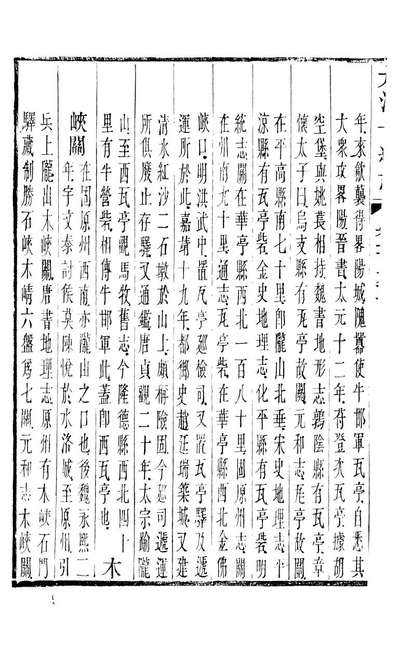 大清一統志
年來歙襲得畧陽城隗囂使牛邯軍瓦亭自悉其
大衆攻畧陽晉書太元十二年苻登次瓦亭據胡
空堡與姚萇相持魏書地形志鶉陰縣有瓦亭章
懷太子曰烏支縣有瓦亭故關元和志瓦亭故關
在平高縣南七十里卽隴山北垂宋史地理志平
涼縣有瓦亭砦金史地理志化平縣有瓦亭砦明
統志關在華亭縣西北一百八十里固原州志關
在州南九十里通志瓦亭砦在華亭縣西北金佛
峽口明洪武中置瓦亭巡檢司又置瓦亭驛及遞
運所於此嘉靖十九年都御史趙廷瑞築城又建
清水紅沙二石墩於山上頗稱險固今巡司遞運
所俱廢止存驛又通鑑唐貞觀二十年太宗踰隴
山至西瓦亭觀馬牧舊志今隆德縣西北四十
里有牛營砦相傳牛邯軍此蓋卽西瓦亭也 木
峽關 在固原州西南亦隴山之口也後魏永熙二
年宇文泰討侯莫陳悅於水洛城至原州引
兵上隴出木峽關唐書地理志原州有木峽石門
驛藏制勝石峽木崝六盤爲七關元和志木峽關